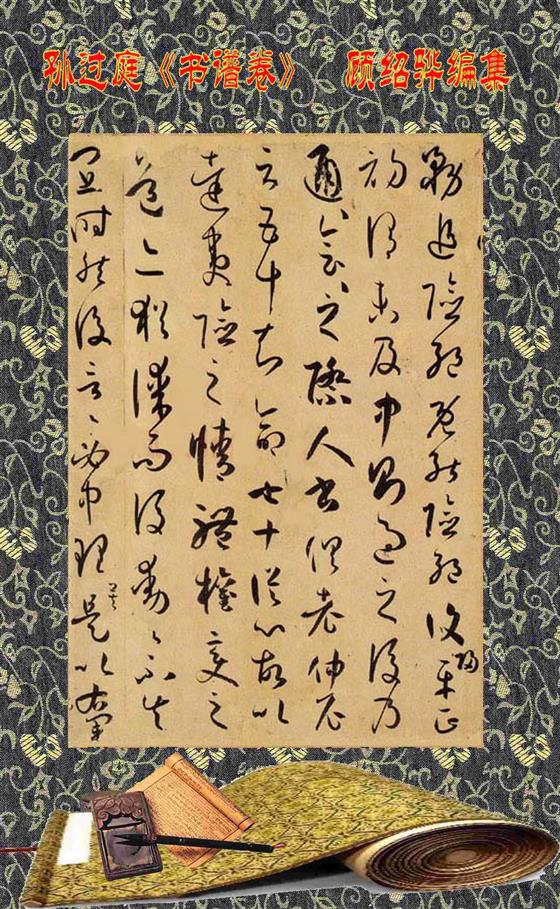 孙过庭《书谱卷》 顾绍骅编集
務追險絕既能險絕復歸平正
初謂未及中則過之後乃
通〻會〻之際人書俱老仲尼
云五十知命七十從心故以
達夷險之情體權變之
道亦猶謀而後動〻不失
宜時然後言〻必中理矣是以右軍